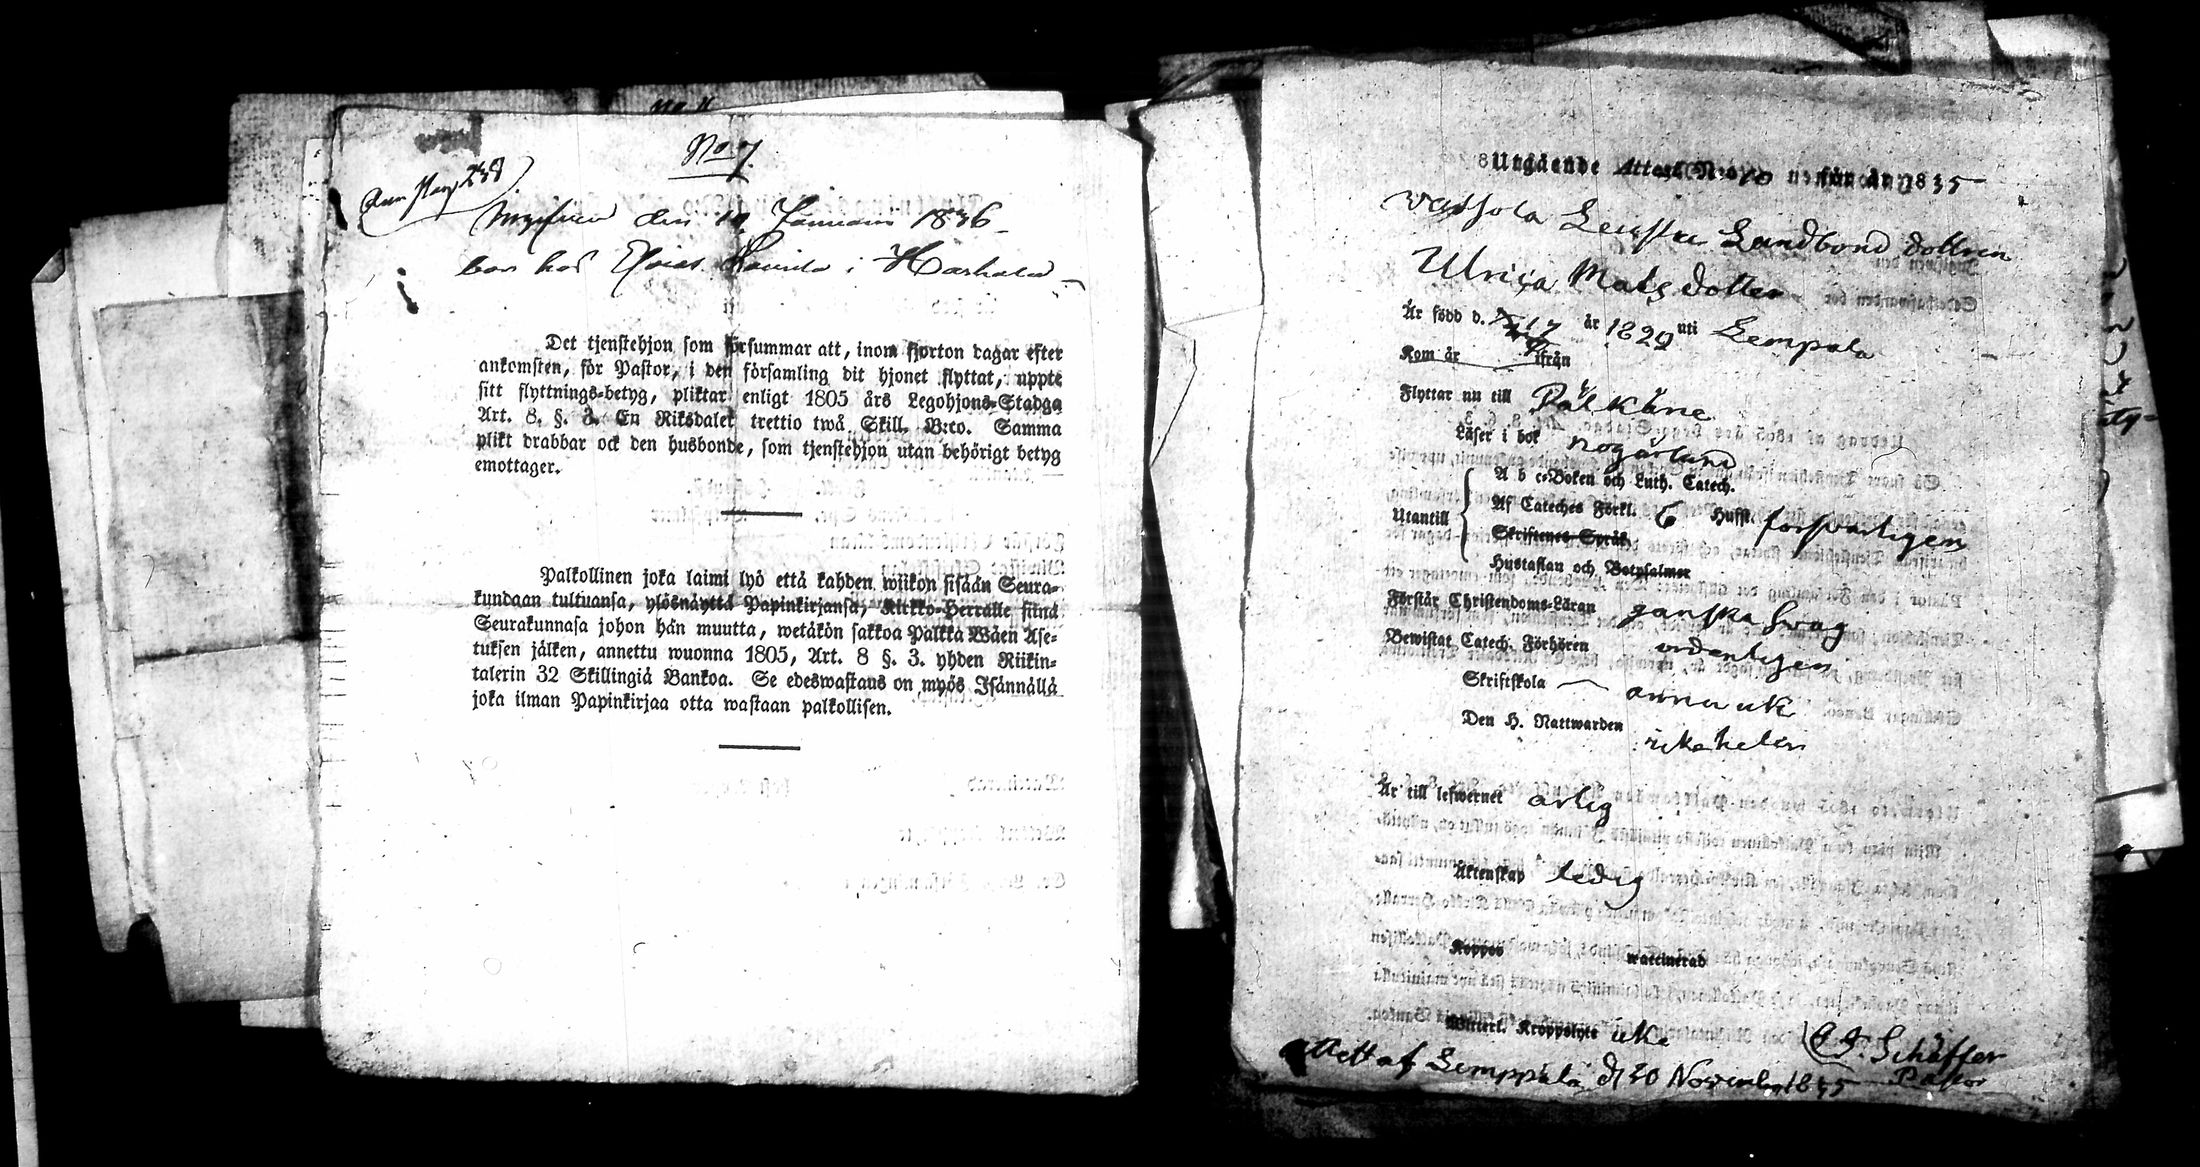 No 7.
den 10 Januari 1836
bor hos i Harhala
Det tjenstehjon som försummar att, inom fjorton dagar efter
ankomsten, för Pastor, i den församling dit hjonet flyttat, uppte
sitt flyttnings-betyg, pliktar enligt 1805 års Legohjons-Stadga
Art. 8. §. 3. En Riksdaler trettio twå Skill. B:co. Samma
plikt drabbar ock den husbonde, som tjenstehjon utan behörigt betyg
emottager.
Palkollinen joka laimi lyö että kahden wiikon sisään Seura-
kundaan tultuansa, ylösnäyttä Papinkirjansa, Kirkko-Herralle siinä
Seurakunnasa johon hän muutta, wetäkön sakkoa Palkka Wäen Ase-
tuksen jälken, annettu wuonna 1805, Art. 8 §. 3. yhden Riikin-
talerin 32 Skillingiä Bankoa. Se edeswastaus on myös Isännällä
joka ilman Papinkirjaa otta wastaan palkollisen.
Utgående Attest N:o 10 för år 1835
Landbond dottren
Ulrica Matsdotter
Är född d. 17 år 1829 uti Lempala
Kom år ifrån
Flyttar nu till Pälkäne
Läser i bok någorlund
A b c-Boken och Luth. Catech.
Utantill Af Cateches Förkl. 6 Hufst. forsvarligen
Skriftenes Språk
Hustaflan och Botpsalmer
Förstår Christendoms-Läran ganska svag
Bewistat Catech. Förhören ordentligen
Skriftskola annu ik
Den H. Nattwarden icke heller
Är till lefwernet arlig
Äktenskap ledig
Koppor waccinerad
Witterl. Kroppslyte icke
Attest af Lemppälä d 20 November 1835
C J. Schäffer
Pastor